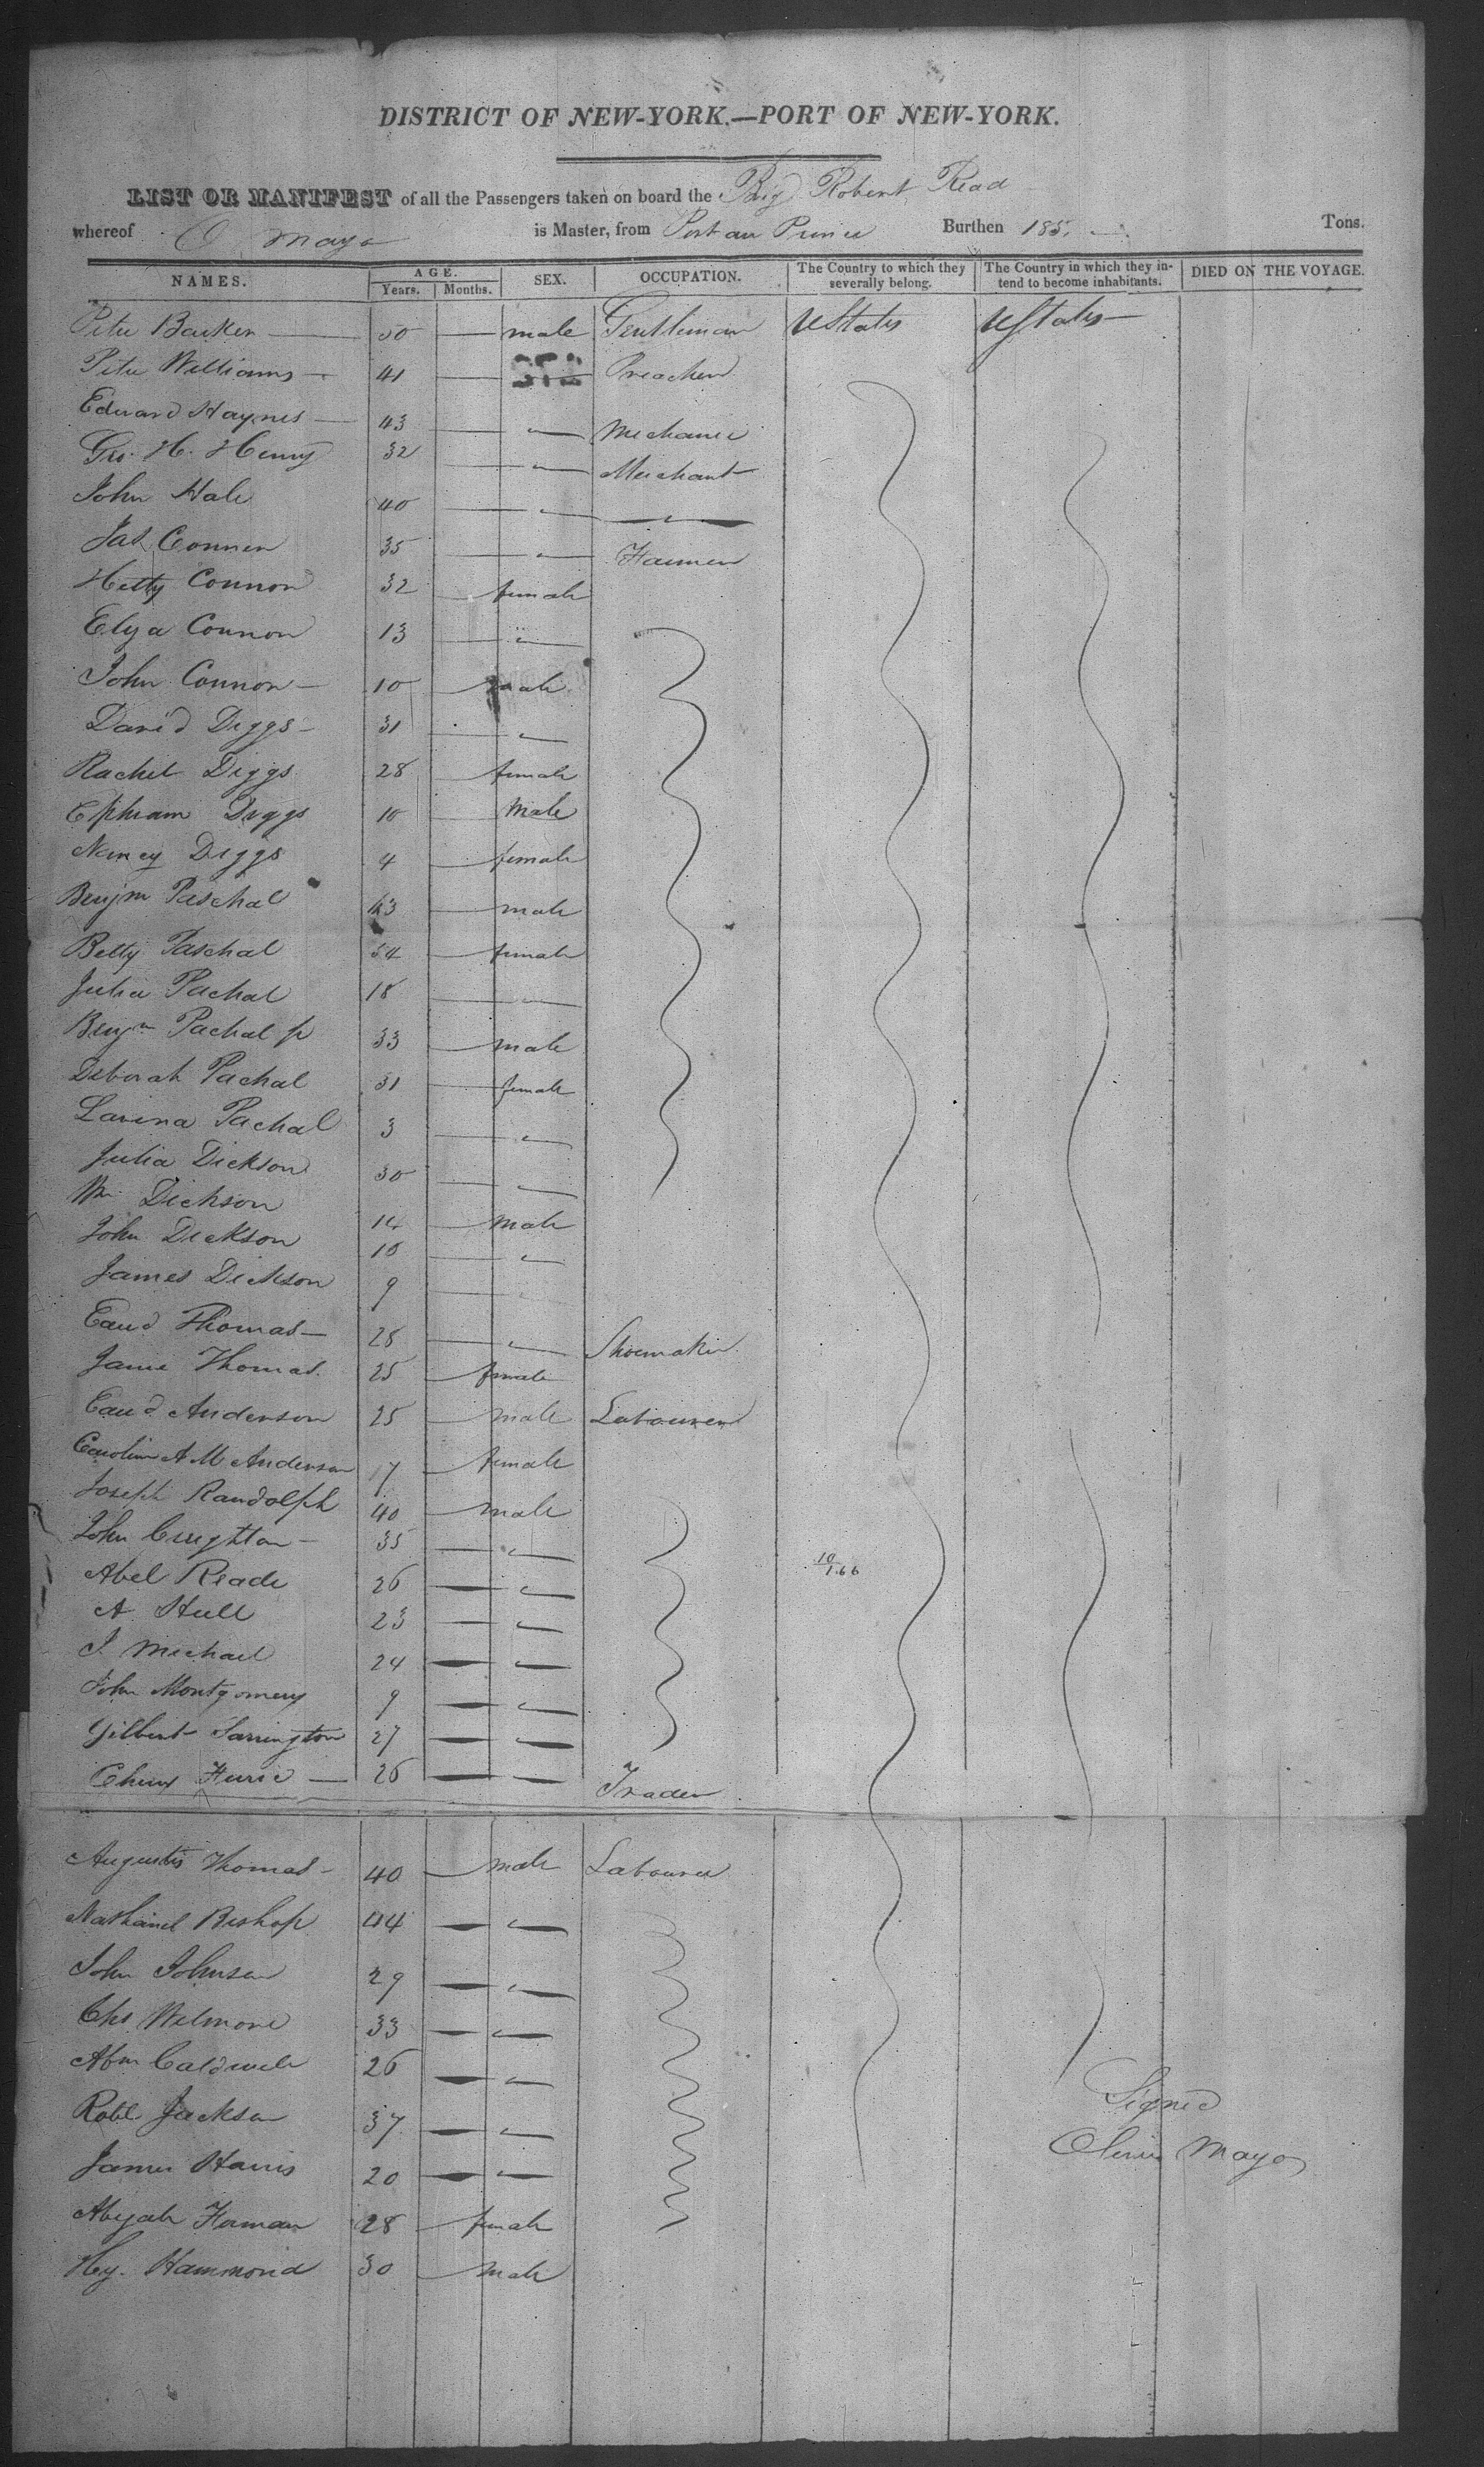 DISTRICT OF NEW-YORK.—PORT OF NEW-YORK.
LIST OR MANIFEST of all the Passengers taken on board the Brig Robert Read
whereof O Mayo is Master, from Port au Prince Burthen 185. Tons.
NAMES. AGE. Years. Months. SEX. OCCUPATION. The Country to which they severally belong. The Country in which they intend to become inhabitants. DIED ON THE VOYAGE.
Peter Barker — 50 — male Gentleman UStates UStates
Peter Williams — 41 — Preacher
Edward Haynes — 43 — " Mechanic
Geo. H. Henry 32 — " Merchant
John Hale 40 — " "
Jas Connor 35 — " Farmer
Hetty Connon 32 — female
Elza Connon 13 — "
John Connon — 10 — male
David Diggs — 31 — "
Rachel Diggs 28 — female
Ephraim Diggs 10 — Male
Nancy Diggs 4 — female
Benjm Paschal 63 — male
Betty Paschal 54 — female
Julia Pachal 18 — "
Benjn Pachal jr 33 — male
Deborah Pachal 31 — female
Lavina Pachal 3 — "
Julia Dickson 30 — "
Wm Dickson 14 — male
John Dickson 10 — "
James Dickson 9 —
Thomas — 28 — " Shoemaker
Jane Thomas 25 — female
Anderson 25 — male Labourer
Caroline A M Anderson 17 — female
Joseph Randolph 40 — male
John Creighton — 35 — "
Abel Reade 26 — "
A. Hull 23 — "
J. Michael 24 — "
John Montgomery 9 — "
Gilbert 27 — "
26 — " Trader
10/166
Augustus Thomas — 40 — male Labourer
Nathaniel Bishop 44 — "
John Johnson 29 — "
Chs Wilmore 33 — "
Abm Caldwell 26 — "
Robt Jackson 37 — "
James Harris 20 — "
28 — female
Hy. Hammond 30 — male
Signed
Oliver Mayo